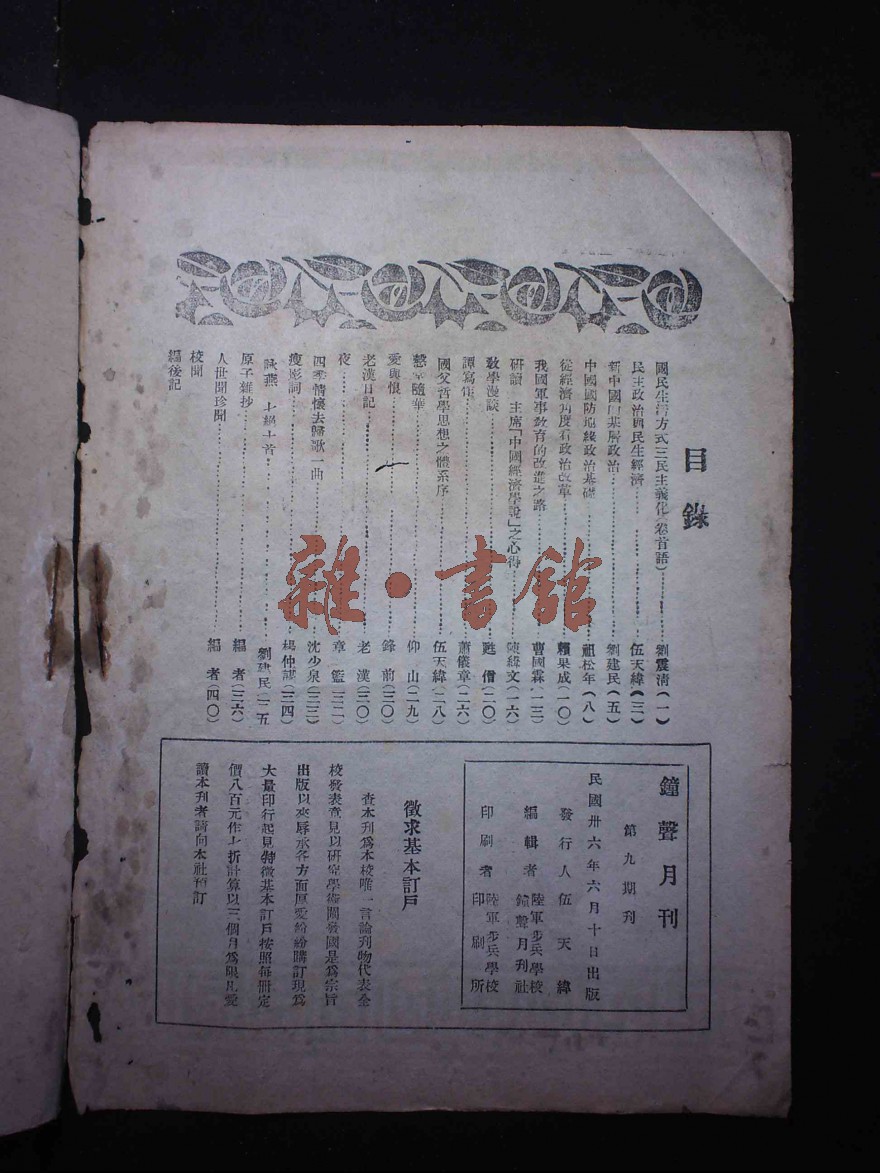 目錄
國民生活方式三民主義化（卷首語）……劉震清（一）
民主政治與民生經濟……伍天緯（三）
新中國的基層政治……劉建民（五）
中國國防地緣政治基礎……祖松年（八）
從經濟角度看政治改革……賴果成（一〇）
我國軍事教育的改進之路……曹國霖（一三）
研讀 主席「中國經濟學說」之心得……陳緯文（一六）
教學漫談……甦僧（二〇）
譚寫作……蕭儀章（二六）
國父哲學思想之體系序……伍天緯（二八）
隨筆……仰山（二九）
愛與恨……鋒前（三〇）
老漢日記……老漢（三〇）
夜……章籃（三二）
四季情懷去歸歌一曲……沈少泉（三三）
瘦影詞……楊仲謀（三四）
詠燕 七絕十首……劉建民（三五
原子雜抄……編者（三六）
人世間珍聞……編者（四〇）
校聞
編後記
鐘聲月刊
第九期刊
民國卅六年六月十日出版
發行人 伍天緯
編輯者 陸軍步兵學校鐘聲月刊社
印刷者 陸軍步兵學校印刷所
徵求基本訂戶
查本刊爲本校唯一言論刊物代表全
校發表意見以研究學術闡發國是爲宗旨
出版以來辱承各方面厚愛紛紛購訂現爲
大量印行起見特徵基本訂戶按照每冊定
價八百元作七折計算以三個月爲限凡愛
讀本刊者請向本社預訂
雜·書館